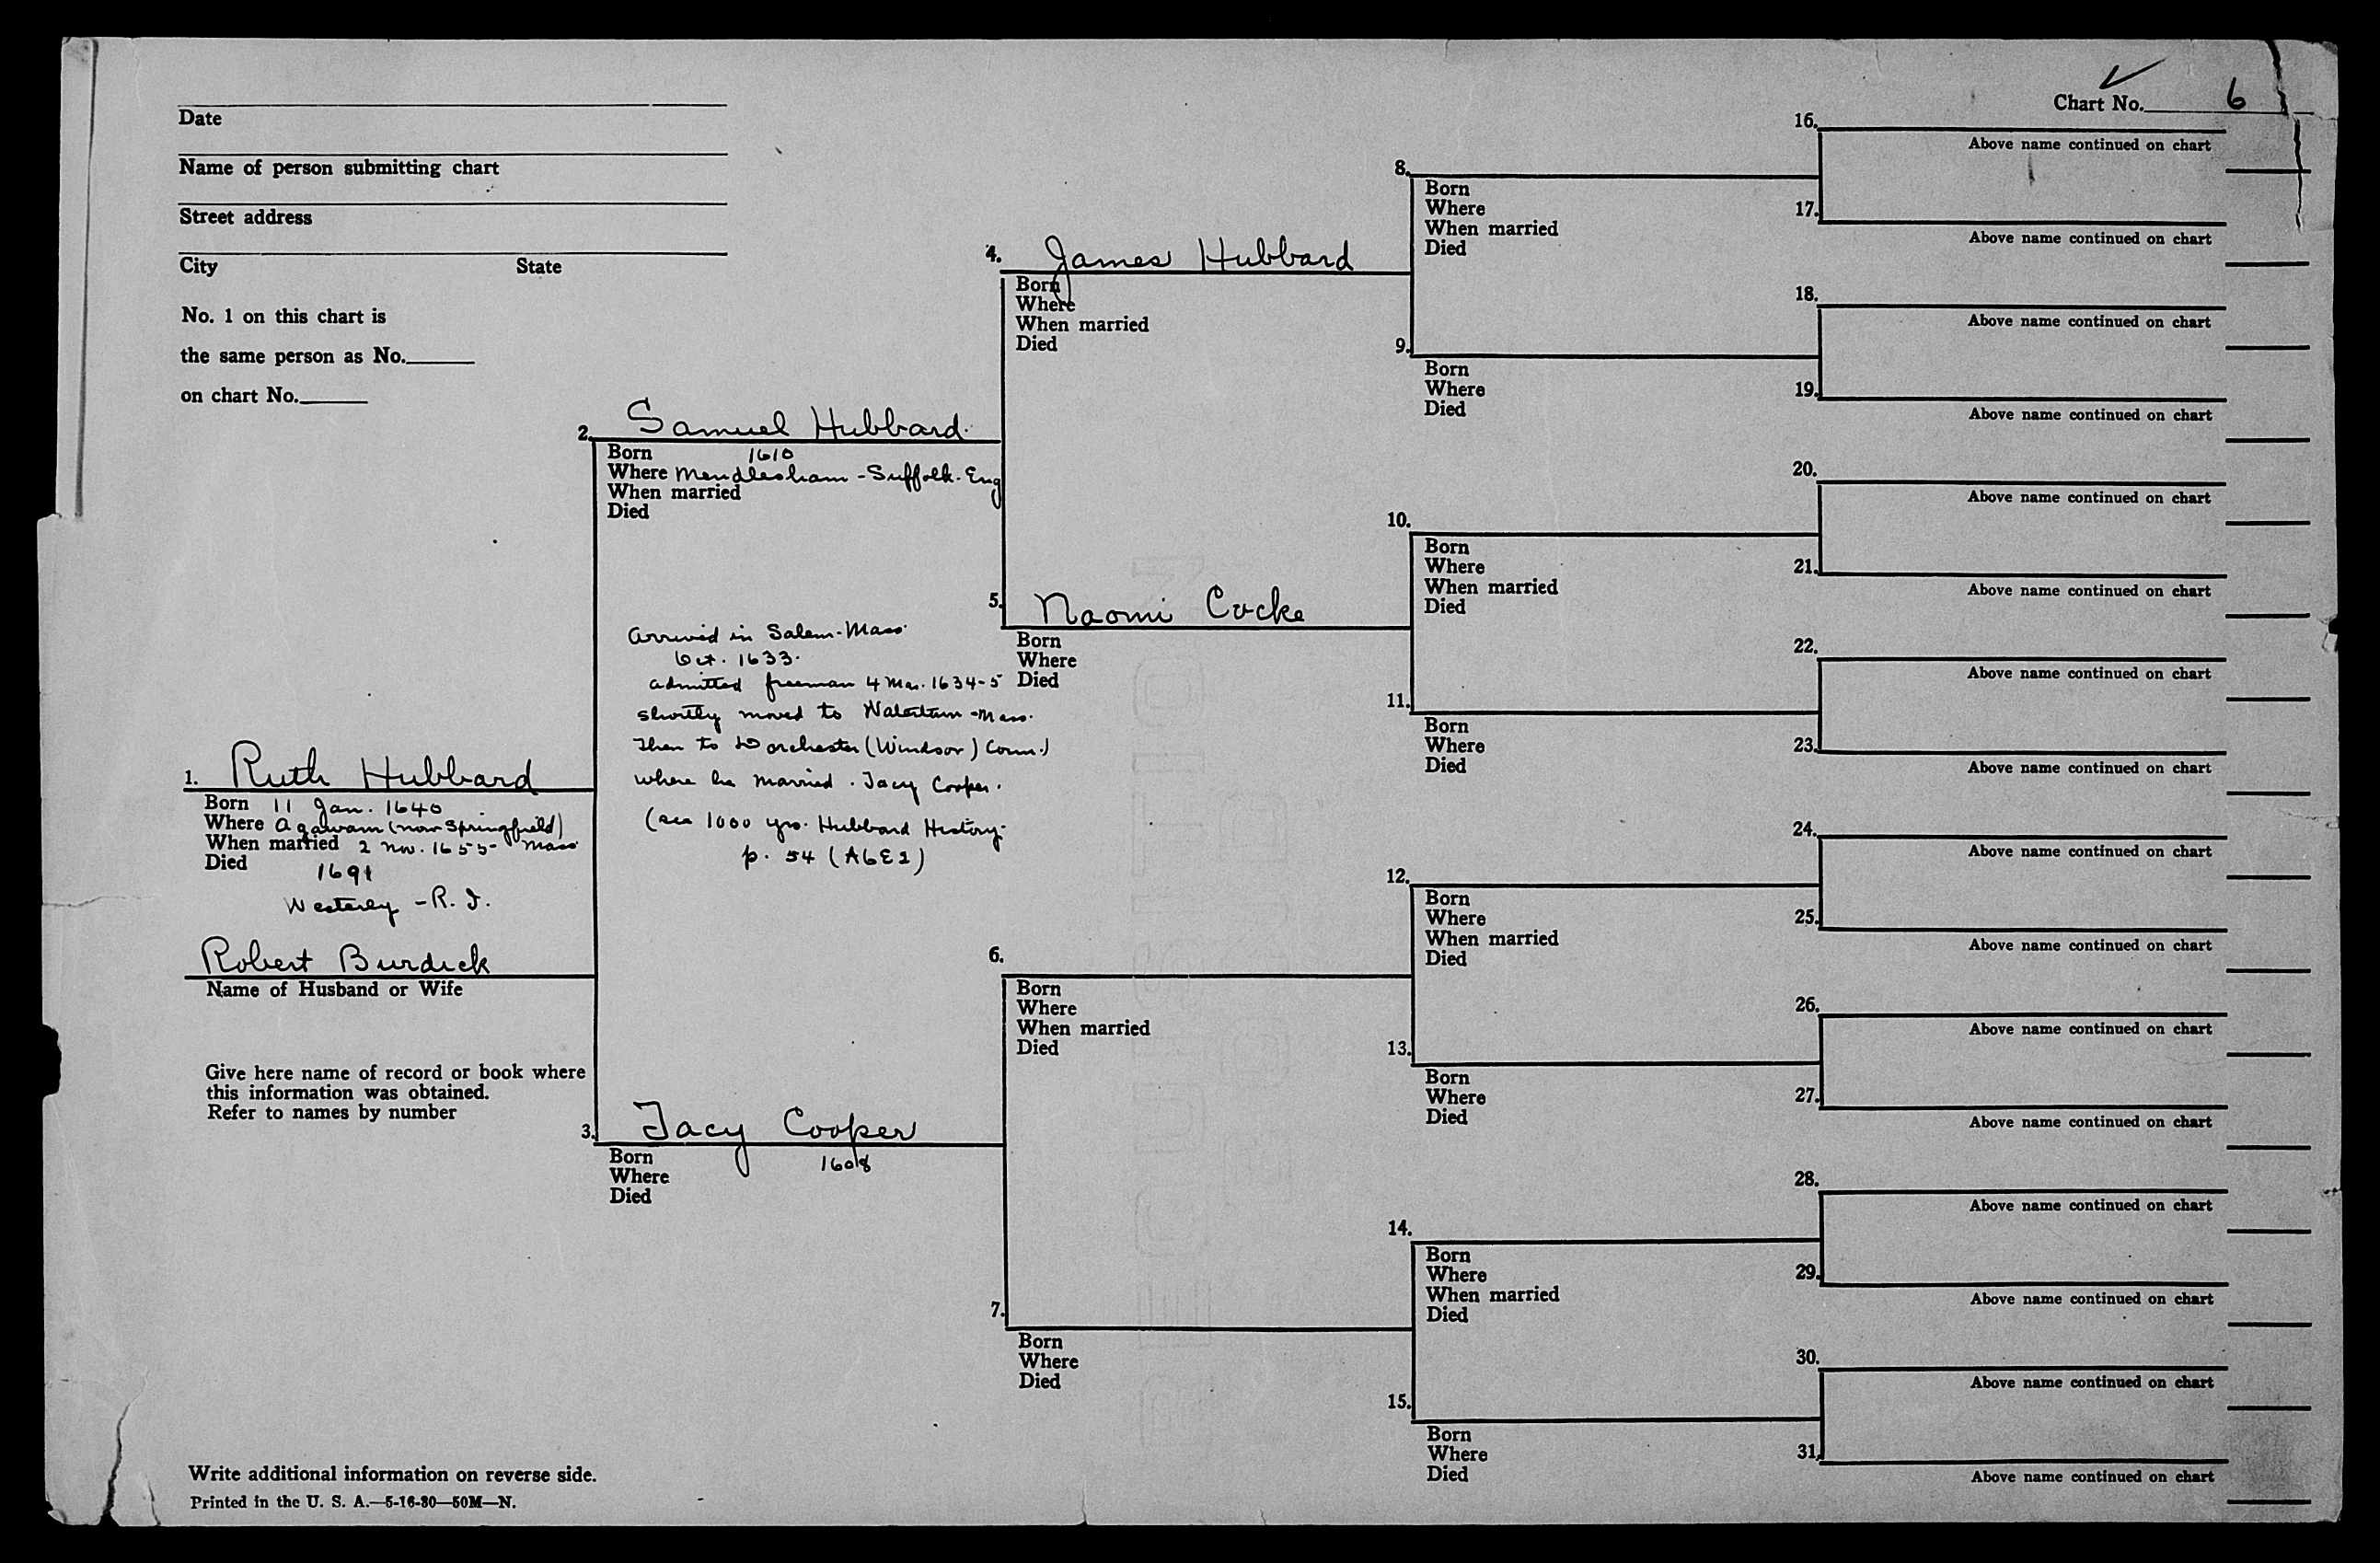 Chart No. 6
Date
Name of person submitting chart
Street address
City State
No. 1 on this chart is
the same person as No.
on chart No.
1. Ruth Hubbard
Born 11 Jan. 1640
Where Agawam (now Springfield)
When married 2 Nov. 1655 - Mass
Died
1691
Westerly - R. I.
Robert Burdick
Name of Husband or Wife
Give here name of record or book where
this information was obtained.
Refer to names by number
2. Samuel Hubbard.
Born 1610
Where Mendlesham - Suffolk. Eng
When married
Died
arrived in Salem - Mass.
Oct. 1633.
admitted freeman 4 Mar. 1634-5
shortly moved to Watertown - Mass.
then to Dorchester (Windsor) Conn.)
where he married. Tacy Cooper.
(see 1000 yrs. Hubbard History.
p. 54 (A6E2)
3. Tacy Cooper
Born 1608
Where
Died
4. James Hubbard
Born
Where
When married
Died
5. Naomi Cocke
Born
Where
Died
6.
Born
Where
When married
Died
7.
Born
Where
Died
8.
Born
Where
When married
Died
9.
Born
Where
Died
10.
Born
Where
When married
Died
11.
Born
Where
Died
12.
Born
Where
When married
Died
13.
Born
Where
Died
14.
Born
Where
When married
Died
15.
Born
Where
Died
16.
Above name continued on chart
17.
Above name continued on chart
18.
Above name continued on chart
19.
Above name continued on chart
20.
Above name continued on chart
21.
Above name continued on chart
22.
Above name continued on chart
23.
Above name continued on chart
24.
Above name continued on chart
25.
Above name continued on chart
26.
Above name continued on chart
27.
Above name continued on chart
28.
Above name continued on chart
29.
Above name continued on chart
30.
Above name continued on chart
31.
Above name continued on chart
Write additional information on reverse side.
Printed in the U. S. A.—5-16-30—50M—N.